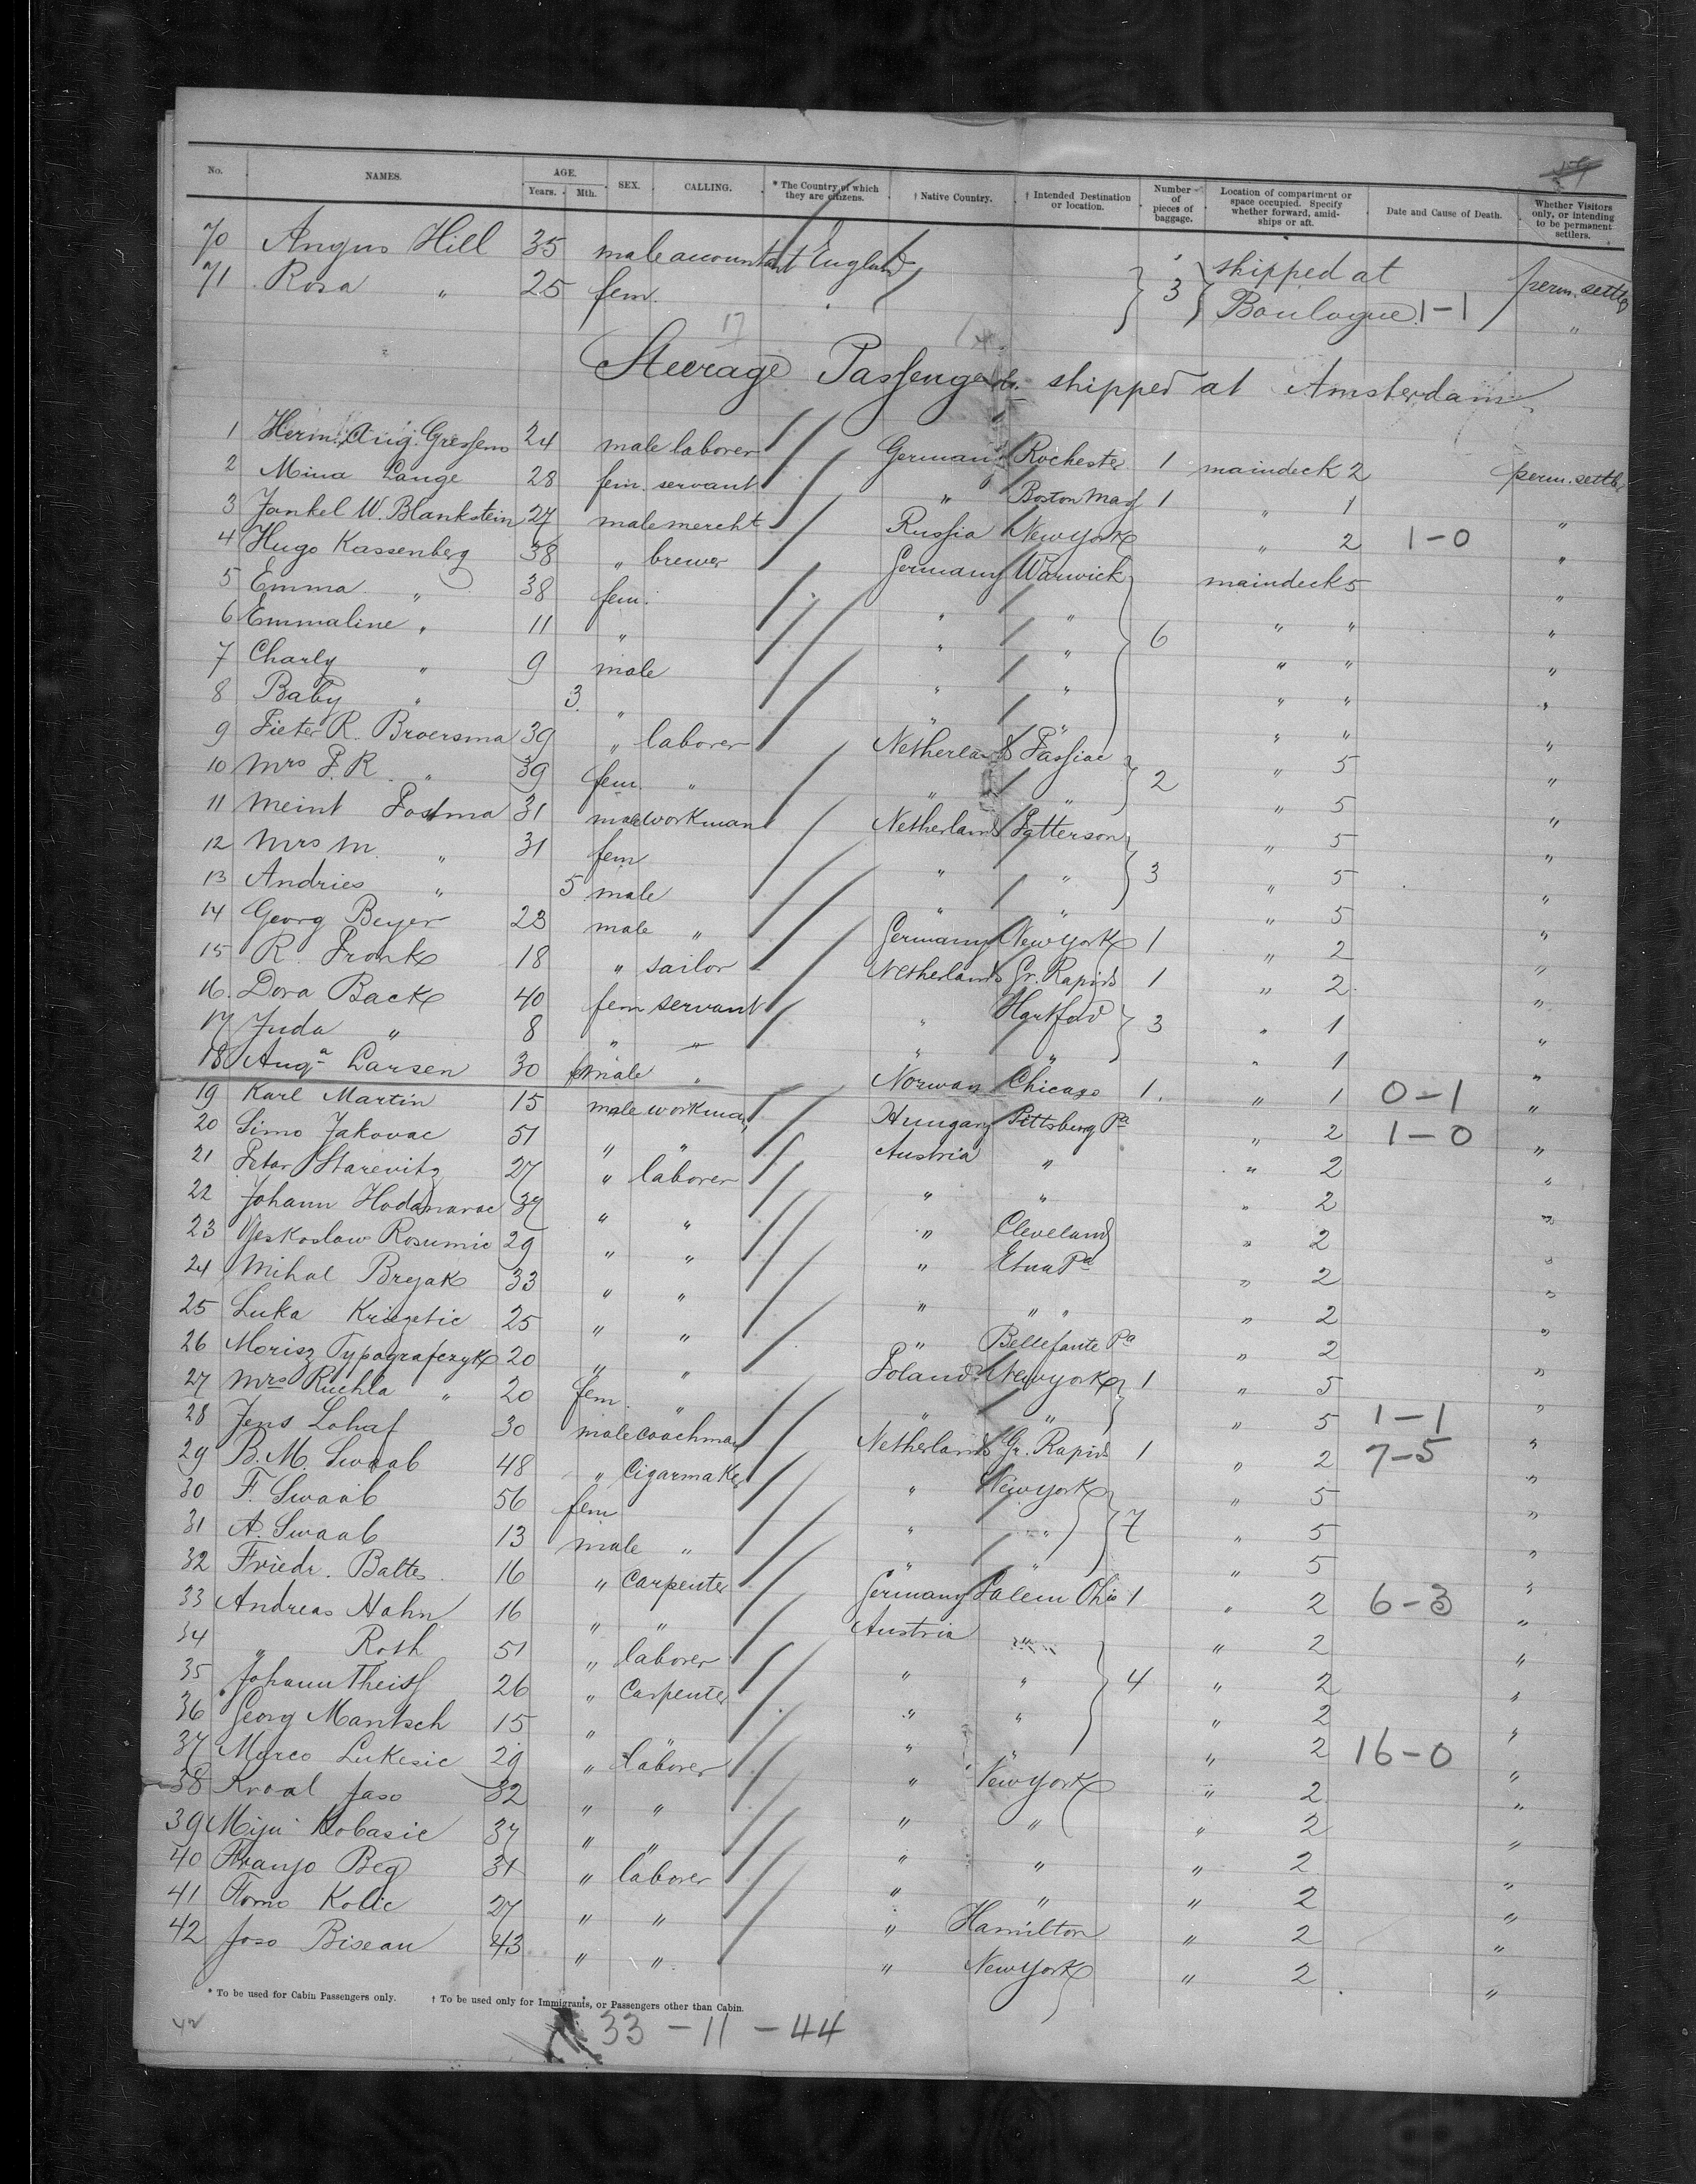 No. NAMES. AGE. Years. Mth. SEX. CALLING. * The Country of which they are citizens. † Native Country. † Intended Destination or location. Number of pieces of baggage. Location of compartment or space occupied. Specify whether forward, amidships or aft. Date and Cause of Death. Whether Visitors only, or intending to be permanent settlers.
70 Angus Hill 35 male accountant England 3 shipped at perm. settler
71 Rosa " 25 fem. Boulogne 1-1 "
Steerage Passengers. shipped at Amsterdam
1 Herm. Aug. 24 male laborer German Rochester 1 maindeck 2 perm. settler
2 Mina Lange 28 fem. servant " Boston Mass 1 " 1 "
3 Jankel W. Blankstein 27 male mercht Russia New York " 2 1-0 "
4 Hugo Kassenberg 38 " brewer Germany Warwick 6 maindeck 5 "
5 Emma " 38 fem. " " " " "
6 Emmaline " 11 " " " " " "
7 Charly " 9 male " " " " "
8 Baby " 3 " " " " " "
9 Pieter R. Broersma 39 " laborer Netherlands Passiac 2 " 5 "
10 Mrs P. R. " 39 fem. " " " " 5 "
11 Meint Postma 31 male workman Netherlands Patterson 3 " 5 "
12 Mrs M. " 31 fem " " " 5 "
13 Andries " 5 male " " " 5 "
14 Georg Beyer 23 male " Germany New York 1 " 2 "
15 R. Pronk 18 " sailor Netherlands Gr. Rapids 1 " 2 "
16. Dora Back 40 fem servant " Hartford 3 " 1 "
17 Juda " 8 " " " " " 1 "
18 Auga Larsen 30 female " Norway Chicago 1. " 1 0-1 "
19 Karl Martin 15 male workman Hungary Pittsburg Pa " 2 1-0 "
20 Simo Jakovac 51 " " Austria " " 2 "
21 Petar Starevitz 27 " laborer " " " 2 "
22 Johann 37 " " " Cleveland " 2 "
23 Rosumic 29 " " " Etna Pa " 2 "
24 Mihal Bryak 33 " " " " " " 2 "
25 Luka 25 " " " Bellefante Pa " 2 "
26 Morisz Typografczyk 20 " " Poland New York 1 " 5 "
27 Mrs Ruchla " 20 fem. " " " " 5 1-1 "
28 Jens Lohaf 30 male coachman Netherlands Gr. Rapids 1 " 2 7-5 "
29 B. M. Swaab 48 " Cigarmaker " New York 7 " 5 "
30 F. Swaab 56 fem " " " 5 "
31 A. Swaab 13 male " " " " 5 "
32 Friedr. Baltes 16 " Carpenter Germany Salem Ohio 1 " 2 6-3 "
33 Andreas Hahn 16 " " Austria " 4 " 2 "
34 " Roth 51 " laborer " " " 2 "
35 Johann Theiss 26 " Carpenter " " " 2 "
36 Georg Mantsch 15 " " " " " 2 16-0 "
37 Marco Lukesic 29 " laborer " New York " 2 "
38 Jaso 32 " " " " " 2 "
39 Kobasic 37 " " " " " 2 "
40 Franjo Beg 31 " laborer " " " 2 "
41 Tomo Kolic 27 " " " Hamilton " 2 "
42 Joso Bisean 43 " " " New York " 2 "
* To be used for Cabin Passengers only. † To be used only for Immigrants, or Passengers other than Cabin.
33 - 11 - 44
42